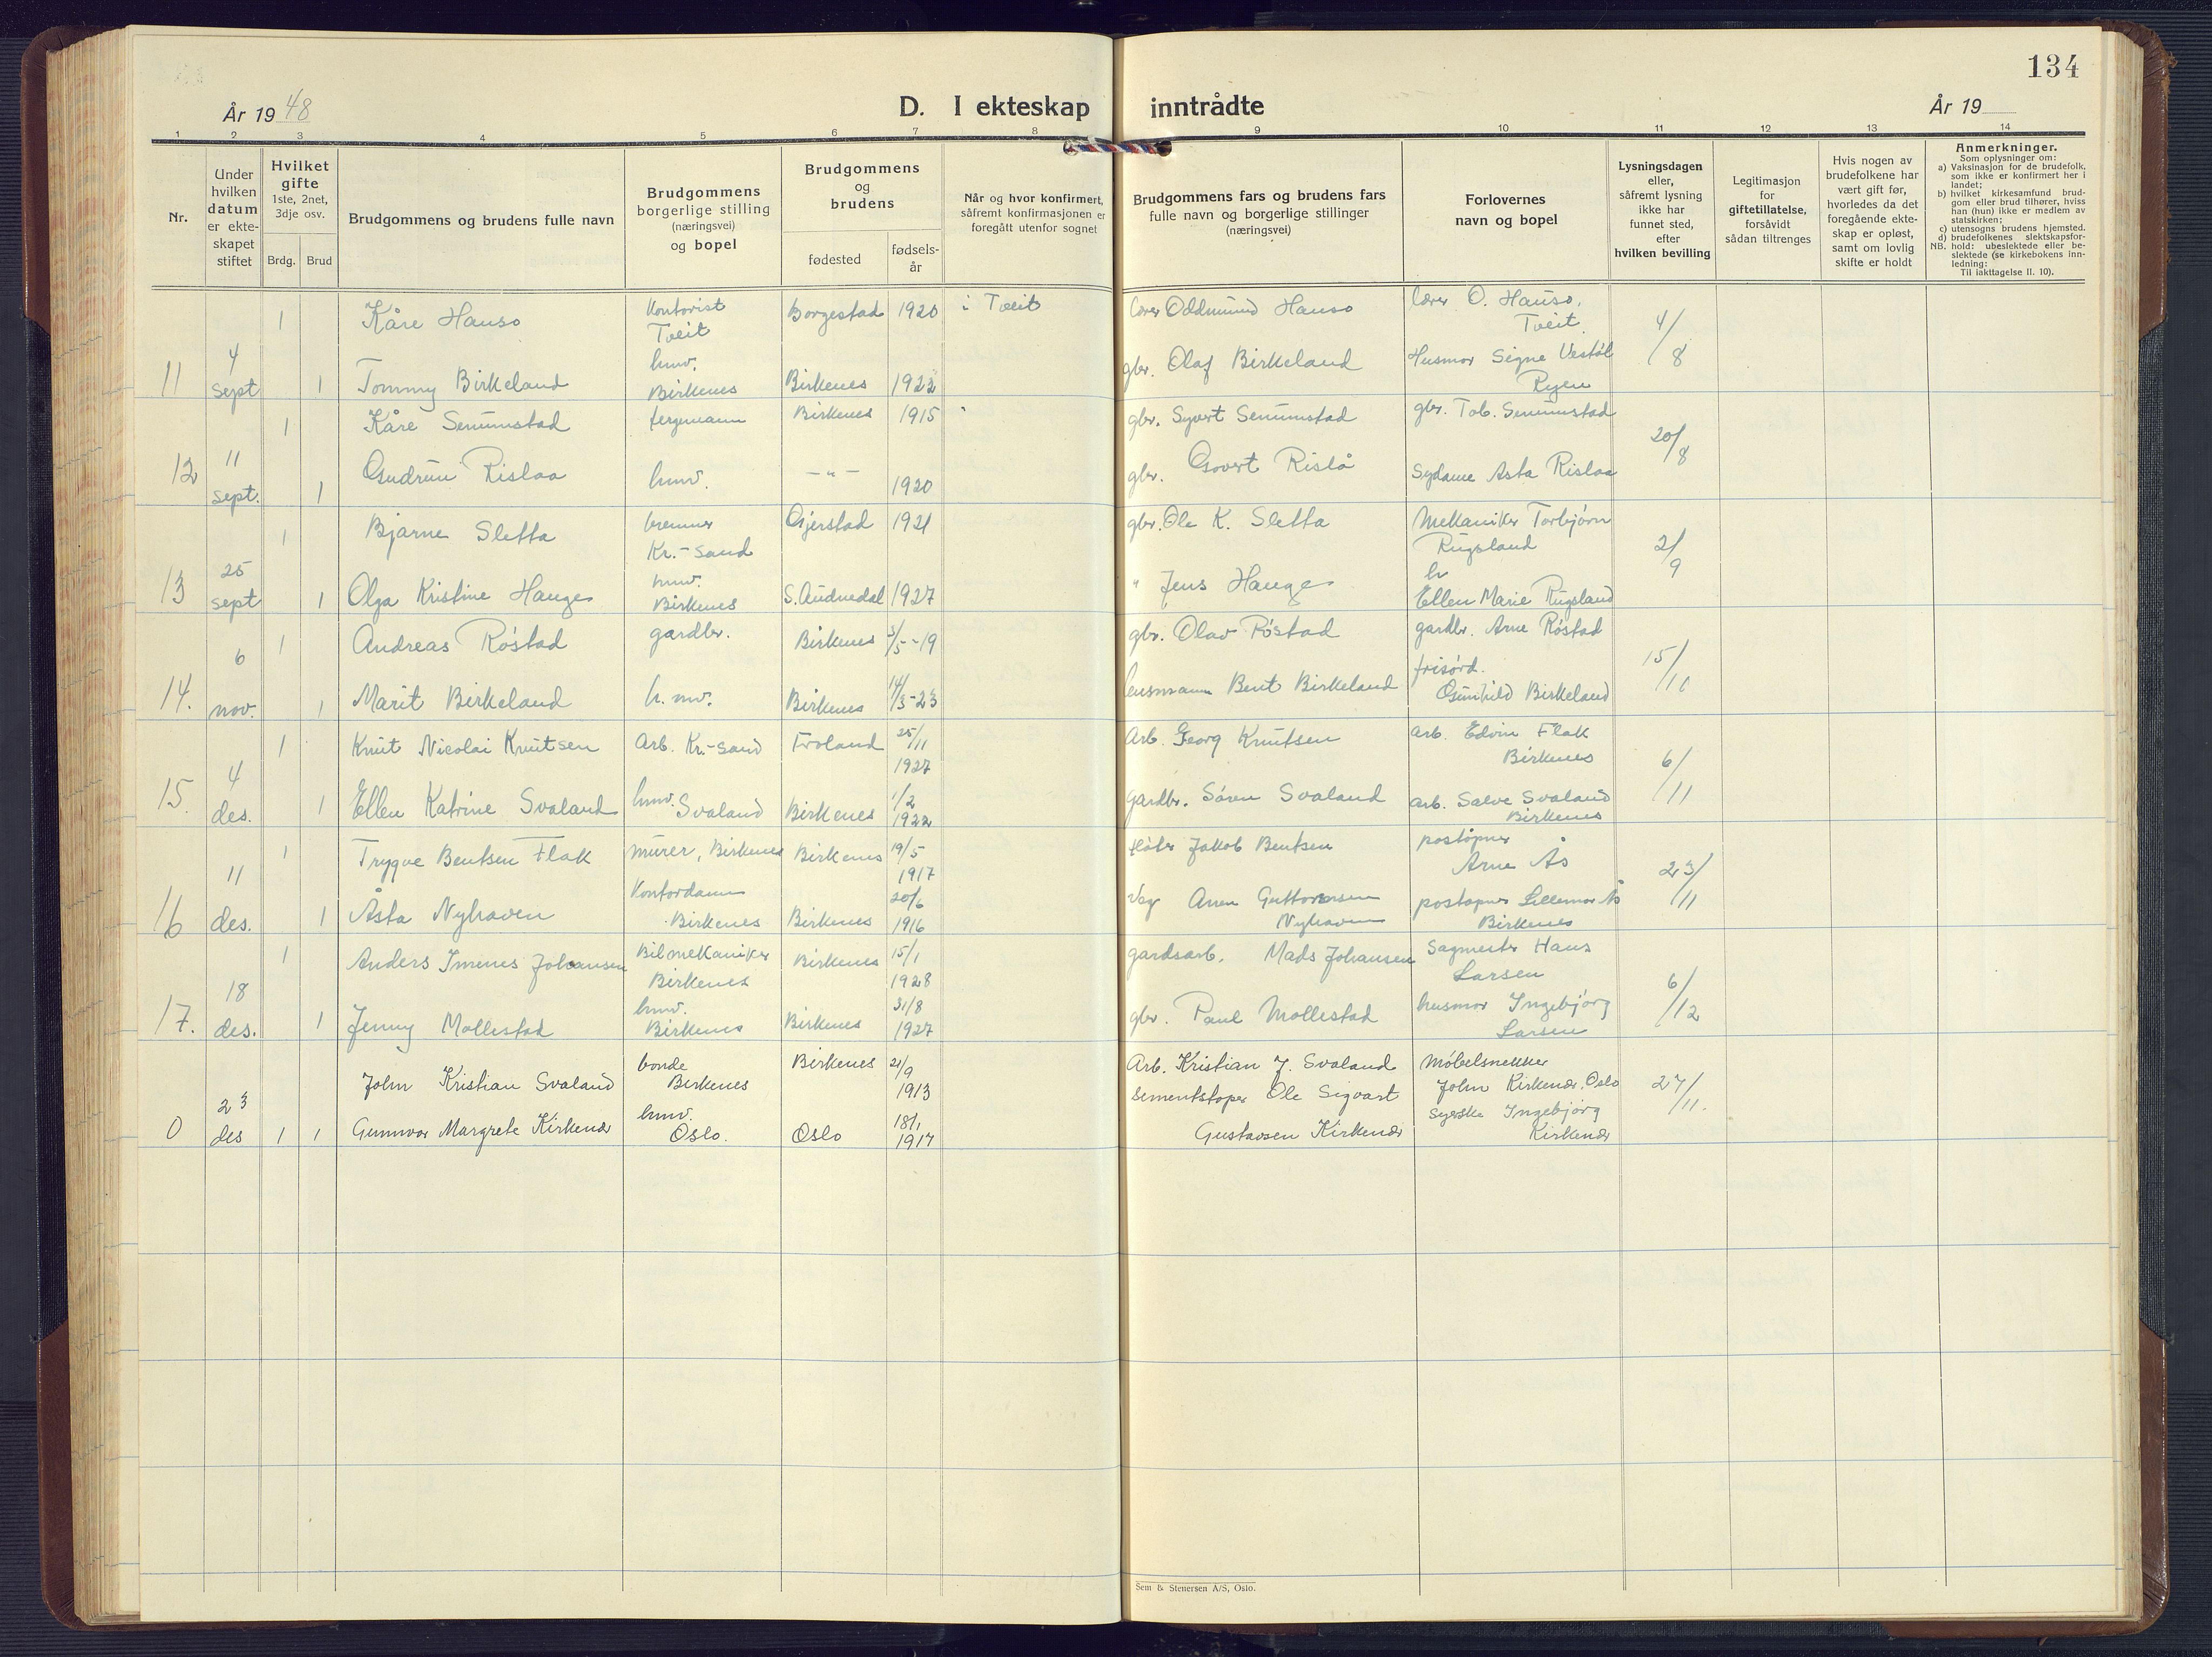 134
År 1948
D. I ekteskap inntrådte
År 19
1 2 3 4 5 6 7 8 9 10 11 12 13 14
Nr.
Under hvilken datum er ekteskapet stiftet
Hvilket gifte 1ste, 2net, 3dje osv.
Brdg. Brud
Brudgommens og brudens fulle navn
Brudgommens borgerlige stilling (næringsvei) og bopel
Brudgommens og brudens
fødested
fødselsår
Når og hvor konfirmert, såfremt konfirmasjonen er foregått utenfor sognet
Brudgommens fars og brudens fars fulle navn og borgerlige stillinger (næringsvei)
Forlovernes navn og bopel
Lysningsdagen eller, såfremt lysning ikke har funnet sted, efter hvilken bevilling
Legitimasjon for giftetillatelse, forsåvidt sådan tiltrenges
Hvis nogen av brudefolkene har vært gift før, hvorledes da det foregående ekteskap er opløst, samt om lovlig skifte er holdt
Anmerkninger.
Som oplysninger om:
a) Vaksinasjon for de brudefolk, som ikke er konfirmert her i landet;
b) hvilket kirkesamfund brudgom eller brud tilhører, hviss han (hun) ikke er medlem av statskirken;
c) utensogns brudens hjemsted.
d) brudefolkenes slektskapsforhold: ubeslektede eller beslektede (se kirkebokens innledning:
NB. Til iakttagelse II. 10).
1 Kåre Hauso Kontorist Tveit Borgestad 1920 i Tveit lærer Oddmund Hauso lærer O. Hauso, Tveit. 4/8
11 4 sept 1 Tommy Birkeland hmv. Birkenes Birkenes 1922 gbr. Olaf Birkeland Husmor Signe Vestøl Ryen
1 Kåre Senumstad fergemann Birkenes 1915 gbr. Syvert Senumstad gbr. Tob. Senumstad 20/8
12 11 sept. 1 Gudrun Rislaa hmv. -"- 1920 gbr. Govert Rislå Sydame Asta Rislaa
1 Bjarne Sletta Kr.-sand Gjerstad 1921 gbr. Ole K. Sletta Mekaniker Torbjørn Rugsland 2/9
13 25 sept 1 Olga Kristine Hauge hmv. Birkenes S. Audnedal 1927 " Jens Hauge Ellen Marie Rugsland
1 Andreas Røstad gardbr. Birkenes 3/5-19 gbr. Olav Røstad gardbr. Arne Røstad
14. 6 nov. 1 Marit Birkeland h.mv. Birkenes 14/3-23 lensmann Bent Birkeland frisørd. Gunhild Birkeland
1 Knut Nicolai Knutsen Arb. Kr.-sand Froland 25/11 1927 Arb. Georg Knutsen arb. Edvin Flak Birkenes 6/11
15. 4 des. 1 Ellen Katrine Svaland hmv. Svaland Birkenes 1/2 1922 gardbr. Søren Svaland arb. Salve Svaland Birkenes
1 Trygve Bentsen Flak murer, Birkenes Birkenes 19/5 1917 Jakob Bentsen poståpner Arne Ås 23/11
16 11 des. 1 Åsta Nyhaven Kontordame Birkenes Birkenes 20/6 1916 Guttormsen Nyhaven postapner Lillemor Ås Birkenes
1 Anders Imenes Johansen Bilmekaniker Birkenes Birkenes 15/1 1928 gardsarb. Mads Johansen Sagmester Hans Larsen 6/12
17. 18 des. 1 Jenny Mollestad hmv. Birkenes Birkenes 31/8 1927 gbr. Paul Mollestad husmor Ingebjørg Larsen
John Kristian Svaland bonde Birkenes Birkenes 21/9 1913 Arb. Kristian J. Svaland Møbelsnekker John Kirkenær, Oslo 27/11.
0 23 des 1 1 Gunnvor Margrete Kirkenær hmv. Oslo. Oslo 18/1 1917 sementstøper Ole Sigvart Gustavsen Kirkenær syerske Ingebjørg Kirkenær
Sem & Stenersen A/S, Oslo.